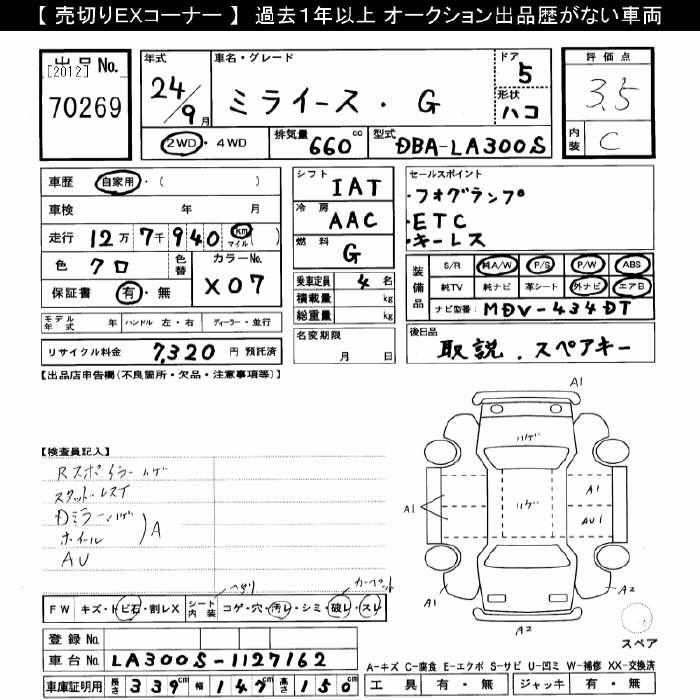 【 売切りEXコーナー 】 過去1年以上 オークション出品歴がない車両
出品No.
[2012]
70269
年式
24/9月
車名・グレード
ミライース・G
ドア
5
形状
ハコ
評価点
3.5
内装
C
2WD・4WD
排気量 660 cc
型式 DBA-LA300S
車歴 自家用・( )
車検 年 月
走行 12万7千940 km マイル( )
色 クロ
色替
カラーNo.
X07
保証書 有・無
モデル年式 年 ハンドル 左・右 ディーラー・並行
リサイクル料金 7,320 円 預託済
シフト IAT
冷房 AAC
燃料 G
乗車定員 4 名
積載量 kg
総重量 kg
名変期限
月 日
セールスポイント
・フォグランプ
・ETC
・キーレス
装備品
S/R 純A/W P/S P/W ABS
純TV 純ナビ 革シート 外ナビ エアB
ナビ型番: MDV-434DT
後日品
取説.スペアキー
【出品店申告欄(不良箇所・欠品・注意事項等)】
【検査員記入】
Rスポイラーハゲ
Dミラーハゲ
ホイール
A
AU
A1
ハゲ
ハゲ
A1
A1
AU1
A1
A2
A2
スペア
FW キズ・トビ石・割レX
シート内装 コゲ・穴・汚レ・シミ・破レ・スレ
カーペット
登録No.
車台No. LA300S-1127162
車庫証明用 長さ 339cm 幅 147cm 高さ 150cm
A-キズ C-腐食 E-エクボ S-サビ U-凹ミ W-補修 XX-交換済
工具 有・無 ジャッキ 有・無